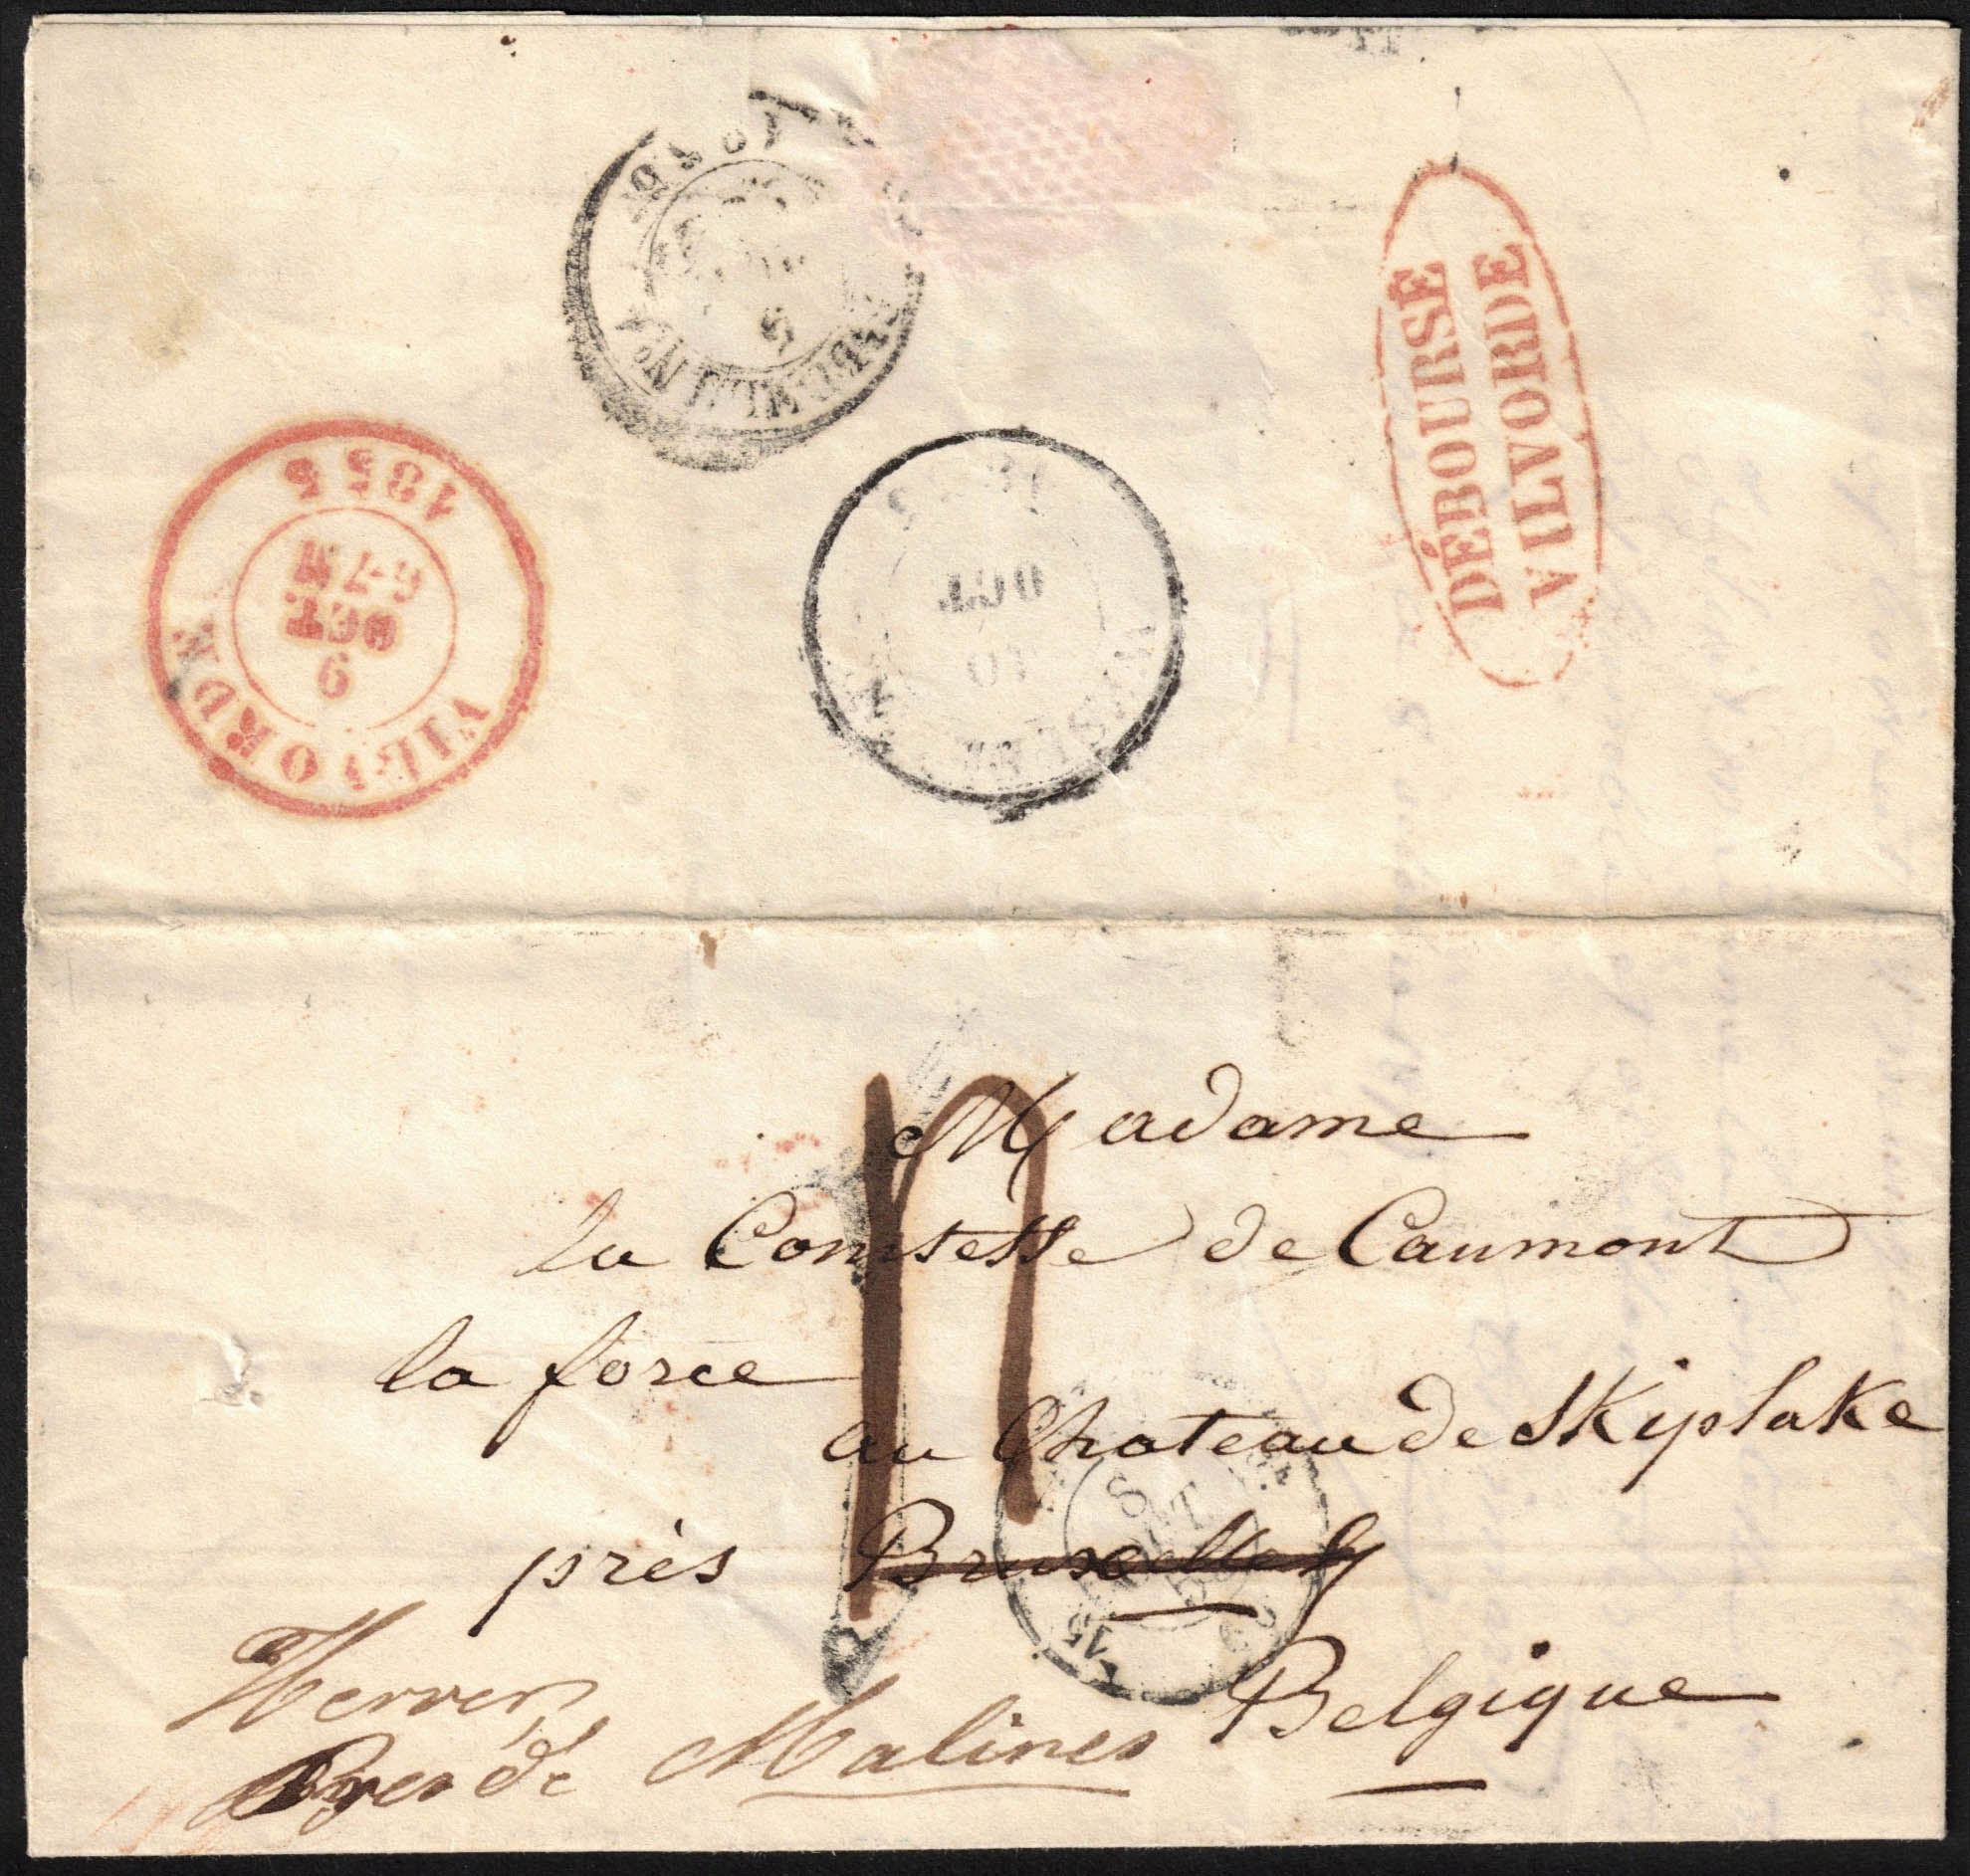 1855
6-7 M
OCT
9
VILVORDE
OCT
10
DÉBOURSÉ
VILVORDE
Madame
la Comtesse de Caumont
la force
au Chateau de Skiplake
près Bruxelles
Belgique
près de Malines